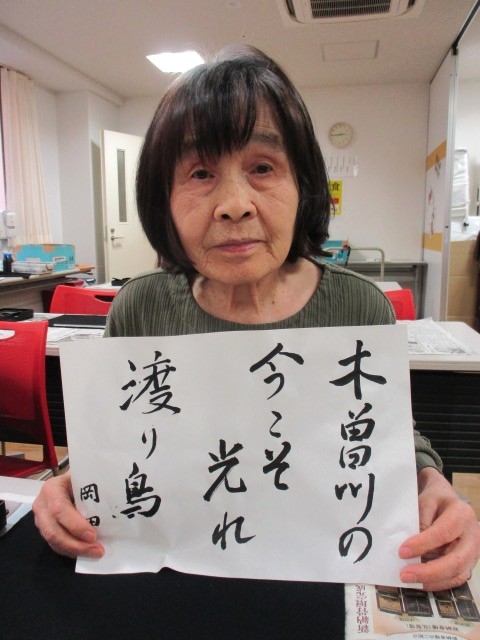 木曽川の
今こそ
光れ
渡り鳥
岡田